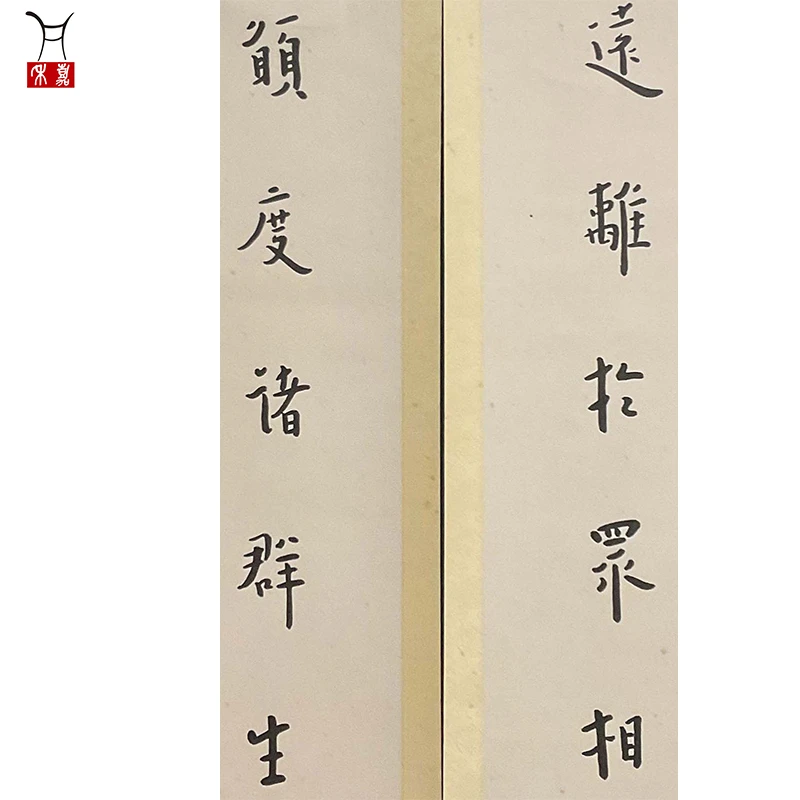 遠離於眾相
願度諸群生